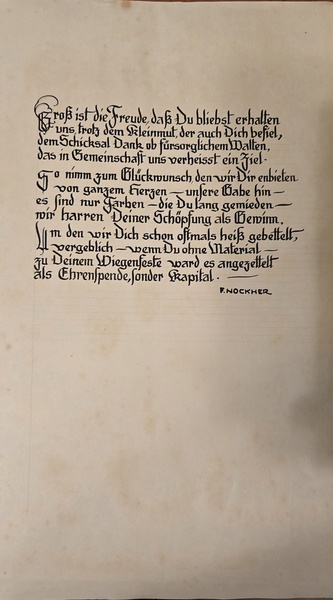 Groß ist die Freude, daß Du bliebst erhalten
uns, trotz dem Kleinmut, der auch Dich befiel,
dem Schicksal Dank ob fürsorglichem Walten,
das in Gemeinschaft uns verheisst ein Ziel.
So nimm zum Glückwunsch, den wir Dir enbieten
von ganzem Herzen — unsere Gabe hin —
es sind nur Farben — die Du lang gemieden —
wir harren Deiner Schöpfung als Gewinn.
Um den wir Dich schon oftmals heiß gebettelt,
vergeblich — wenn Du ohne Material —
zu Deinem Wiegenfeste ward es angezettelt
als Ehrenspende, sonder Kapital. —
F. NOCKHER